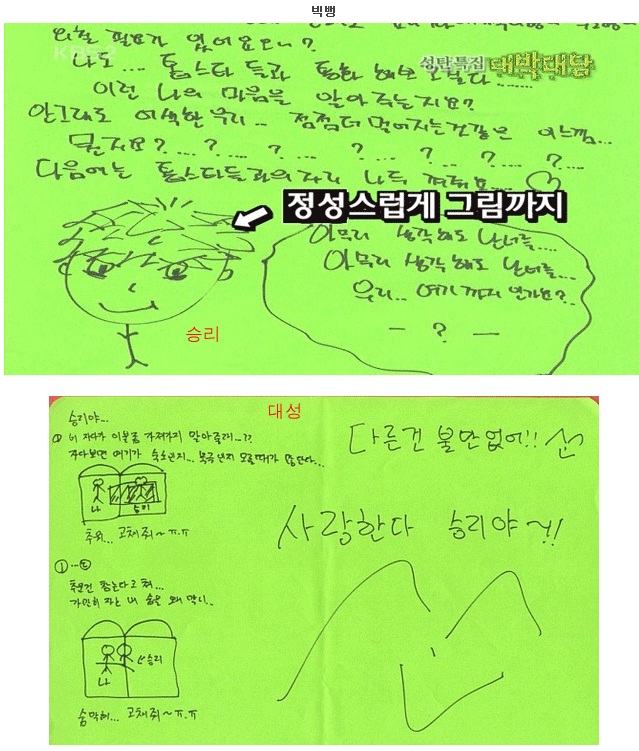 빅뺑
외칠 필요가 있어요오니?
KBS 2
나도... 톱스타 들과 통화 해보고 싶다......
성탄특집 대박대담
이런 나의 마음을 알아 주는지요?
안그래도 어색한 우리... 점점더 멀어지는것같은 이느낌...
뭔지요?...?...?...?...?...?...
다음에는 톱스타들과의 자리 나두 껴줘요...
정성스럽게 그림까지
아무리 생각해도 난너를....
아무리 생각해도 난너를...
우리.. 여기까지 인가요?..
- ? -
승리
대성
승리야...
① 너 자다가 이불좀 가져가지 말아줄래...!?
자다보면 여기가 숙소인지.. 북극인지 모를때가 많단다...
나 승리
추워... 고쳐줘~ㅠ.ㅠ
다른건 불만없어!!
사랑한다 승리야~!!
추운건 참는다고 쳐...
가만히 자는 내 숨을 왜 막니..
승리
나
숨막혀... 고쳐줘~ㅠ.ㅠ